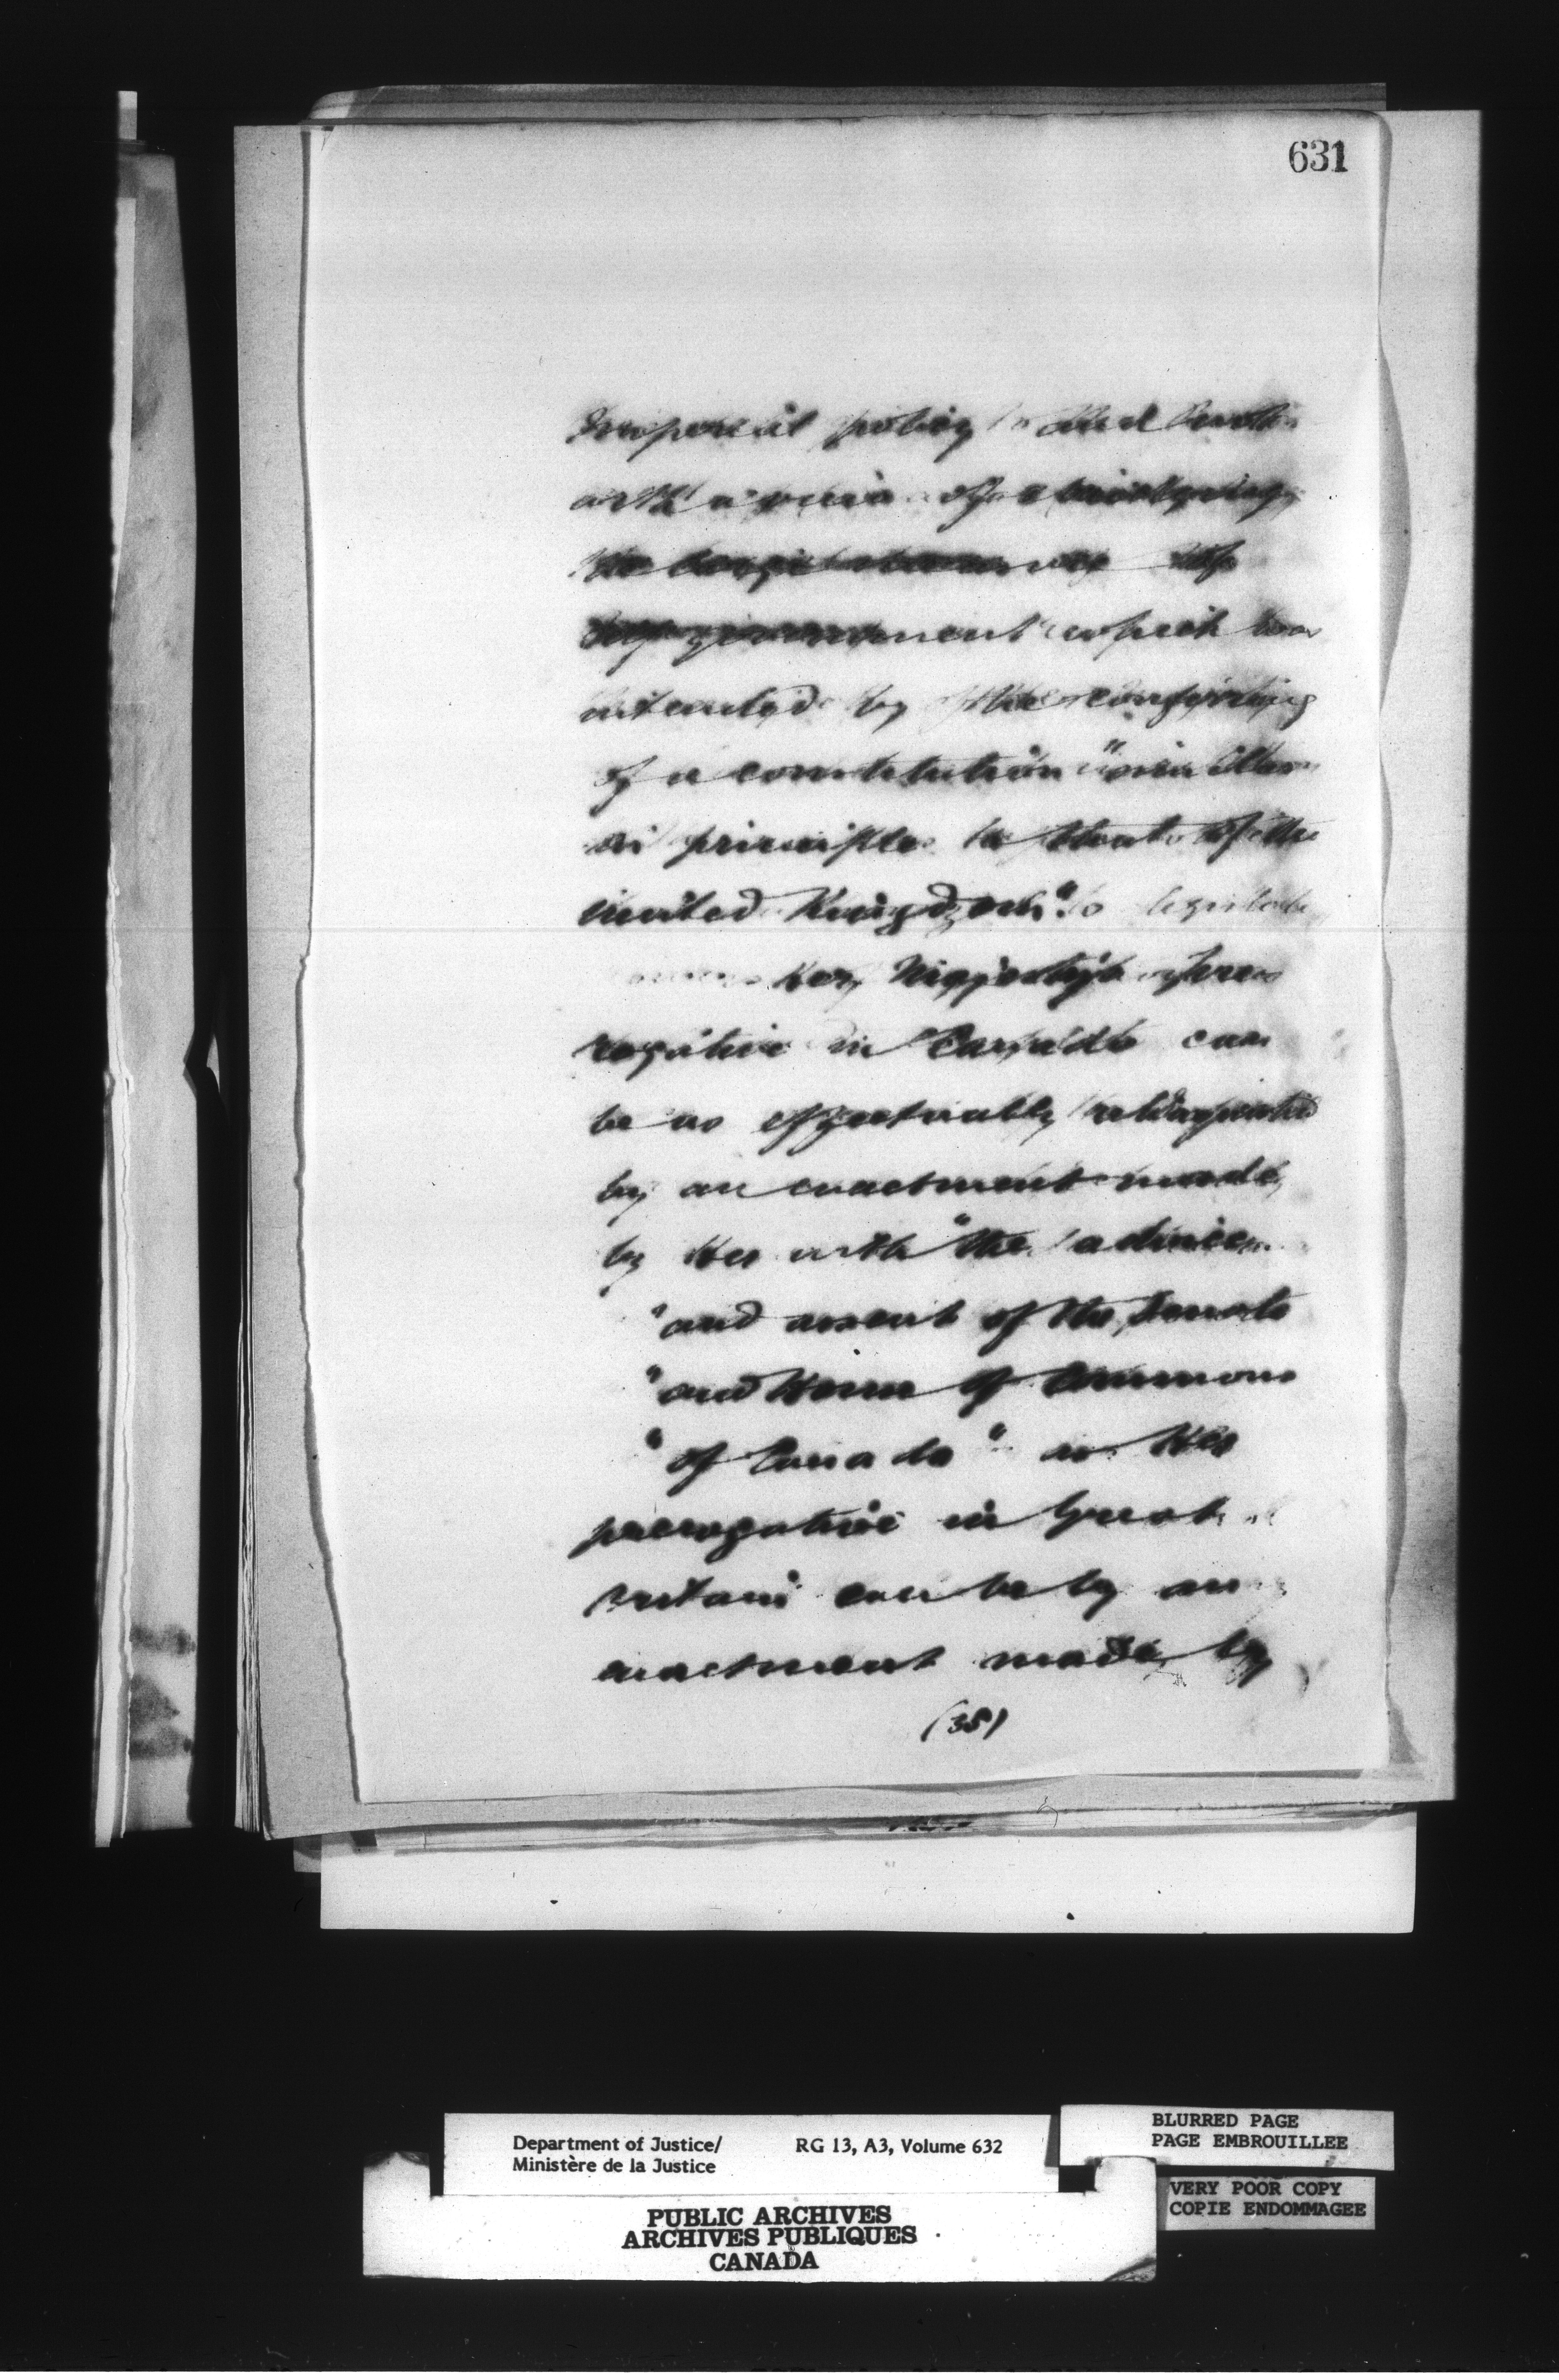 631
Imperial policy and
with a view of
the
government which was
intended by the conferring
of a constitution "similar
in principle to that of the
United Kingdom" to legislate
Her Majesty's prero
rogative in Canada can
be as effectually
by an enactment made
by Her with "the advice
"and assent of the Senate
"and House of Commons
"of Canada" as Her
prerogative in Great
Britain can be by an
enactment made by
(35)
Department of Justice/
Ministère de la Justice
RG 13, A3, Volume 632
BLURRED PAGE
PAGE EMBROUILLEE
VERY POOR COPY
COPIE ENDOMMAGEE
PUBLIC ARCHIVES
ARCHIVES PUBLIQUES
CANADA